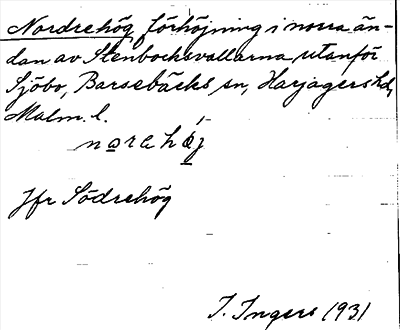 Nordrehög, förhöjning i norra än-
dan av Stenbocksvallarna utanför
Sjöbo, Barsebäcks sn, Harjagers hd,
Malm. l.
norahǿj
Jfr Södrehög
I. Ingers 1931